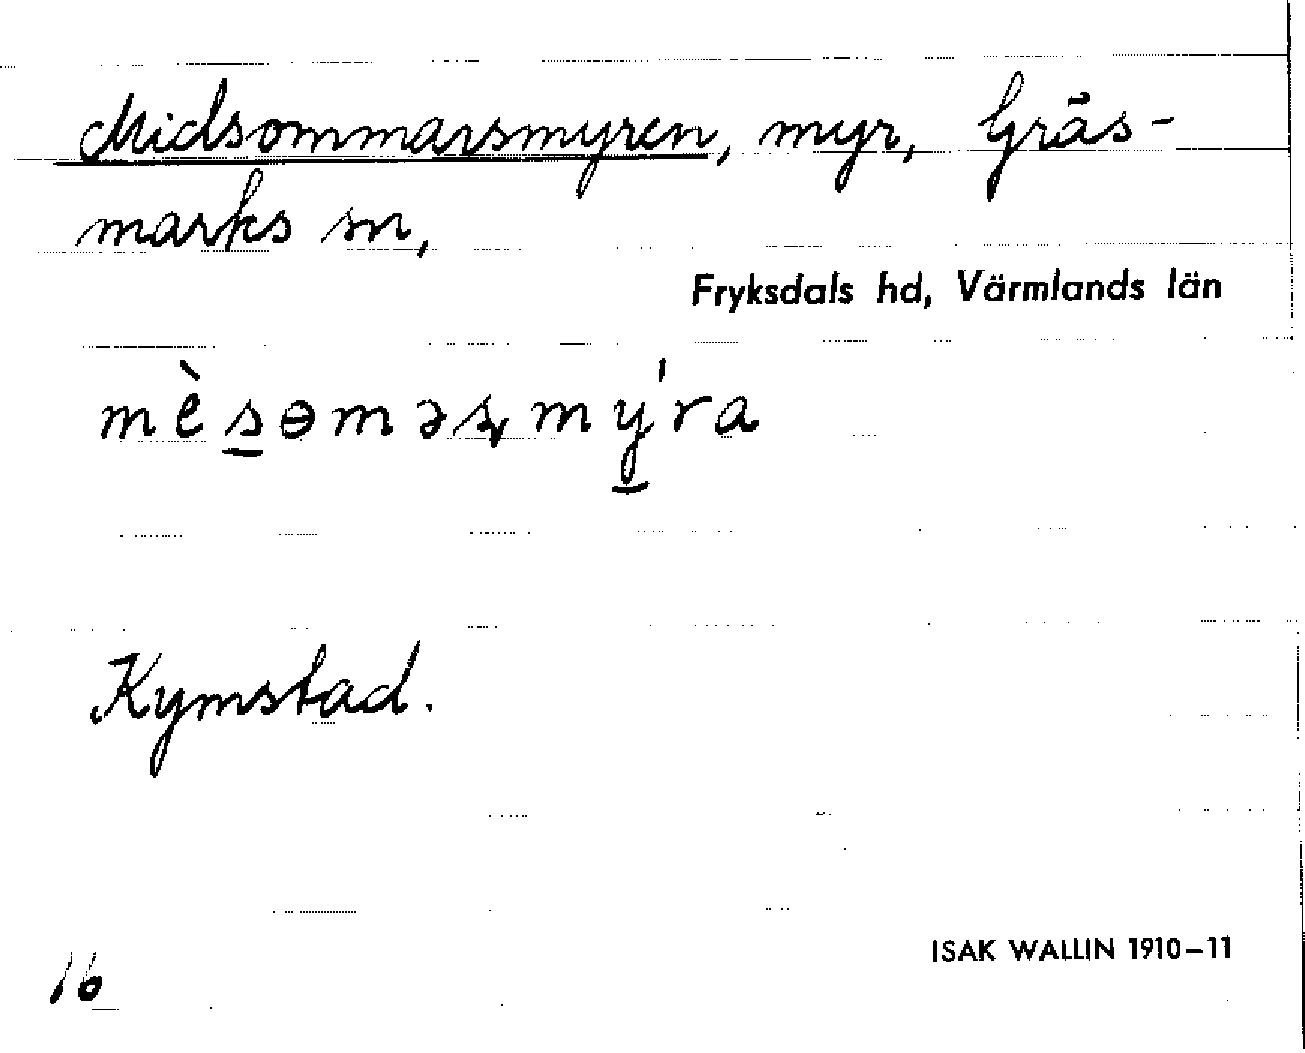 Midsommarsmyren, myr, Gräs-
marks sn,
Fryksdals hd, Värmlands län
mè̱sɵməʂmý̱ra
Kymstad.
16
ISAK WALLIN 1910–11